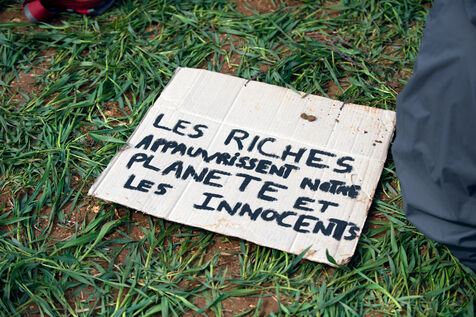 LES RICHES
APPAUVRISSENT NOTRE
PLANETE ET
LES INNOCENTS